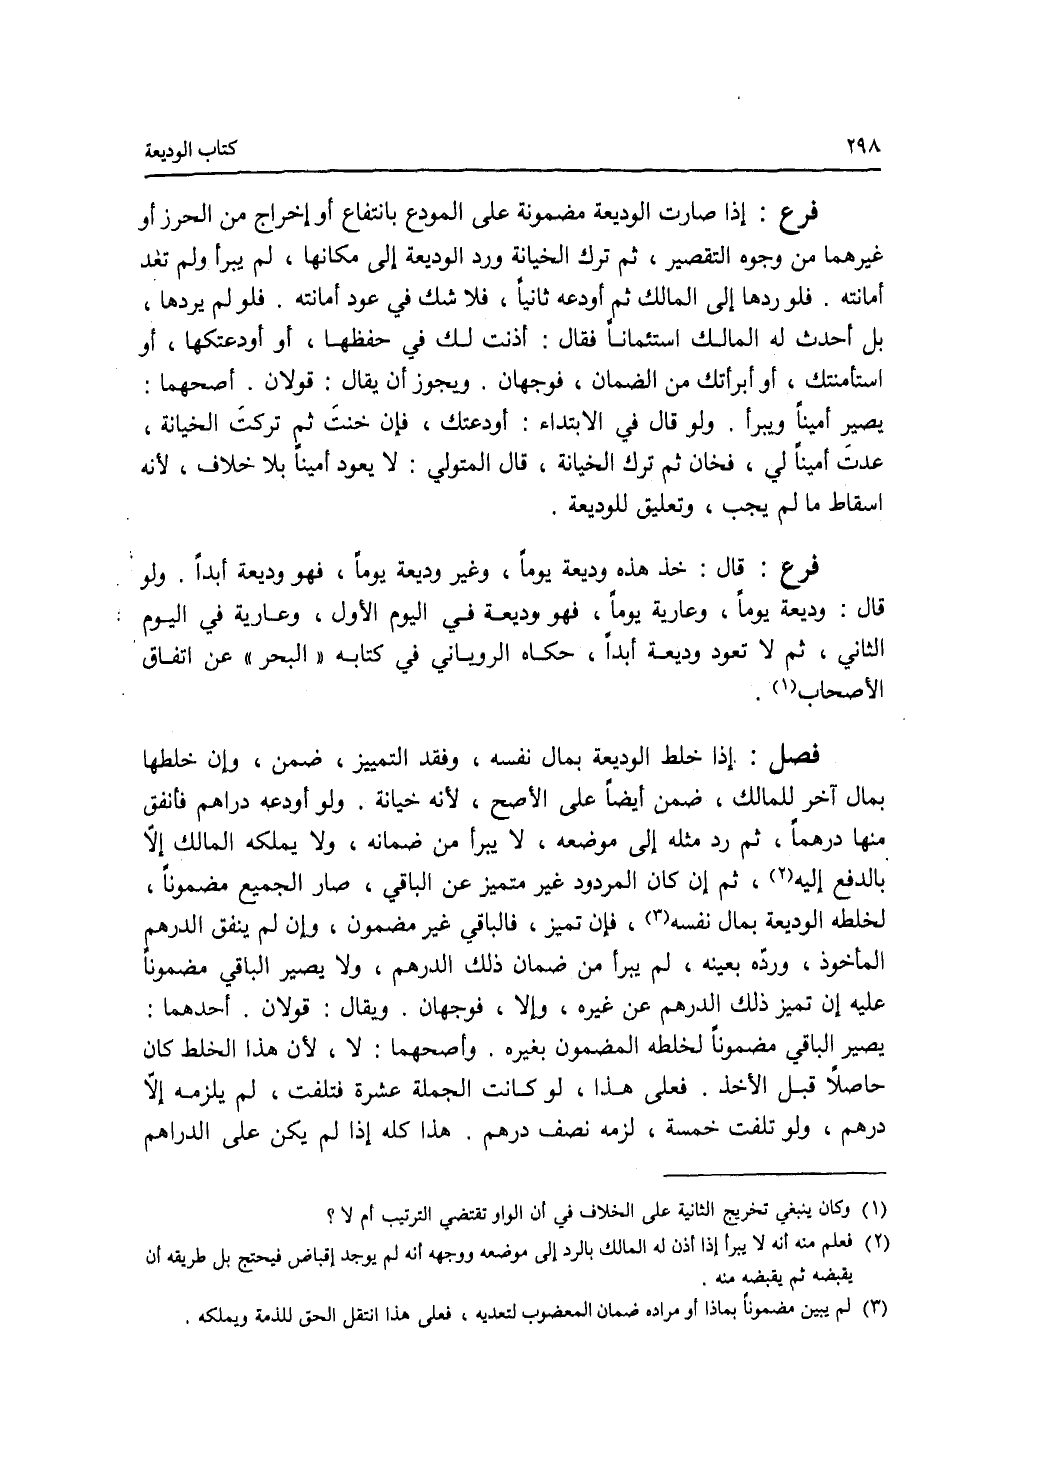 ٢٩٨
كتاب الوديعة
فرع : إذا صارت الوديعة مضمونة على المودع بانتفاع أو إخراج من الحرز أو
غيرهما من وجوه التقصير ، ثم ترك الخيانة ورد الوديعة إلى مكانها ، لم يبرأ ولم تعُد
أمانته . فلو ردها إلى المالك ثم أودعه ثانياً ، فلا شك في عود أمانته . فلو لم يردها ،
بل أحدث له المالك استئماناً فقال : أذنت لك في حفظها ، أو أودعتكها ، أو
استأمنتك ، أو أبرأتك من الضمان ، فوجهان . ويجوز أن يقال : قولان . أصحهما :
يصير أميناً ويبرأ . ولو قال في الابتداء : أودعتك ، فإن خنتَ ثم تركتَ الخيانة ،
عدتَ أميناً لي ، فخان ثم ترك الخيانة ، قال المتولي : لا يعود أميناً بلا خلاف ، لأنه
اسقاط ما لم يجب ، وتعليق للوديعة .
فرع : قال : خذ هذه وديعة يوماً ، وغير وديعة يوماً ، فهو وديعة أبداً . ولو
قال : وديعة يوماً ، وعارية يوماً ، فهو وديعة في اليوم الأول ، وعارية في اليوم
الثاني ، ثم لا تعود وديعة أبداً ، حكاه الروياني في كتابه « البحر » عن اتفاق
الأصحاب(١) .
فصل : إذا خلط الوديعة بمال نفسه ، وفقد التمييز ، ضمن ، وإن خلطها
بمال آخر للمالك ، ضمن أيضاً على الأصح ، لأنه خيانة . ولو أودعه دراهم فأنفق
منها درهماً ، ثم رد مثله إلى موضعه ، لا يبرأ من ضمانه ، ولا يملكه المالك إلّا
بالدفع إليه(٢) ، ثم إن كان المردود غير متميز عن الباقي ، صار الجميع مضموناً ،
لخلطه الوديعة بمال نفسه(٣) ، فإن تميز ، فالباقي غير مضمون ، وإن لم ينفق الدرهم
المأخوذ ، وردّه بعينه ، لم يبرأ من ضمان ذلك الدرهم ، ولا يصير الباقي مضموناً
عليه إن تميز ذلك الدرهم عن غيره ، وإلا ، فوجهان . ويقال : قولان . أحدهما :
يصير الباقي مضموناً لخلطه المضمون بغيره . وأصحهما : لا ، لأن هذا الخلط كان
حاصلاً قبل الأخذ . فعلى هذا ، لو كانت الجملة عشرة فتلفت ، لم يلزمه إلّا
درهم ، ولو تلفت خمسة ، لزمه نصف درهم . هذا كله إذا لم يكن على الدراهم
(١) وكان ينبغي تخريج الثانية على الخلاف في أن الواو تقتضي الترتيب أم لا ؟
(٢) فعلم منه أنه لا يبرأ إذا أذن له المالك بالرد إلى موضعه ووجهه أنه لم يوجد إقباض فيحتج بل طريقه أن
يقبضه ثم يقبضه منه .
(٣) لم يبين مضموناً بماذا أو مراده ضمان المعضوب لتعديه ، فعلى هذا انتقل الحق للذمة ويملكه .